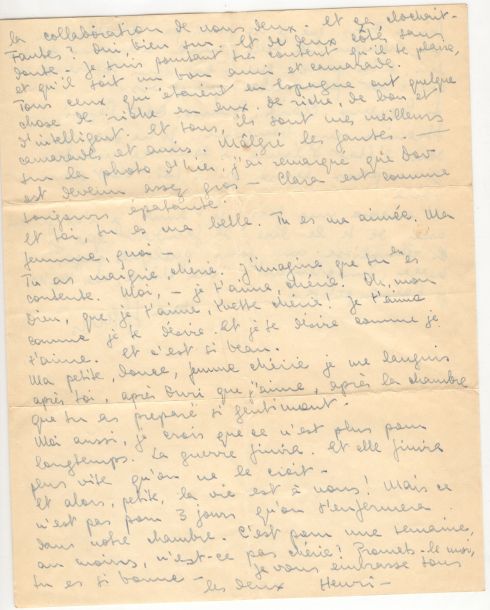 la collaboration de nous deux et ça clochait.
Fautes? Oui, bien sur. Et de deux côté sans
doute. Je suis pourtant très content qu'il te plaise,
et qu'il soit un bon ami et camarade.
Tous ceux qui étaient en Espagne ont quelque
chose de riche en eux. De riche, de bon et
d'intelligent. Et tous, ils sont mes meilleurs
camarades et amis. Malgré les fautes. —
Sur la photo d'hier, j'ai remarqué que Dov
est devenu assez gros — Clara est comme
toujours épatante.
Et toi, tu es ma belle. Tu es ma aimée. Ma
femme, quoi —
Tu as maigrie, chérie. J'imagine que tu en es
contente. Moi, — je t'aime, chérie. Oh, mon
Dieu, que je t'aime, Yvette chérie! Je t'aime
comme je te désire. Et je te désire comme je
t'aime. Et c'est si beau.
Ma petite, douce, femme chérie je me languis
après toi, après Ouri que j'aime, après la chambre
que tu as preparé si gentiment.
Moi aussi, je crois que ce n'est plus pour
longtemps. La guerre finira. Et elle finira
plus vite qu'on ne le croit —
Et alors, petite, la vie est à nous! Mais ce
n'est pas pour 3 jours qu'on s'enfermera
dans notre chambre. C'est pour une semaine,
au moins, n'est-ce pas chérie? Promets-le moi,
tu es si bonne — je vous embrasse tous
les deux Henri —